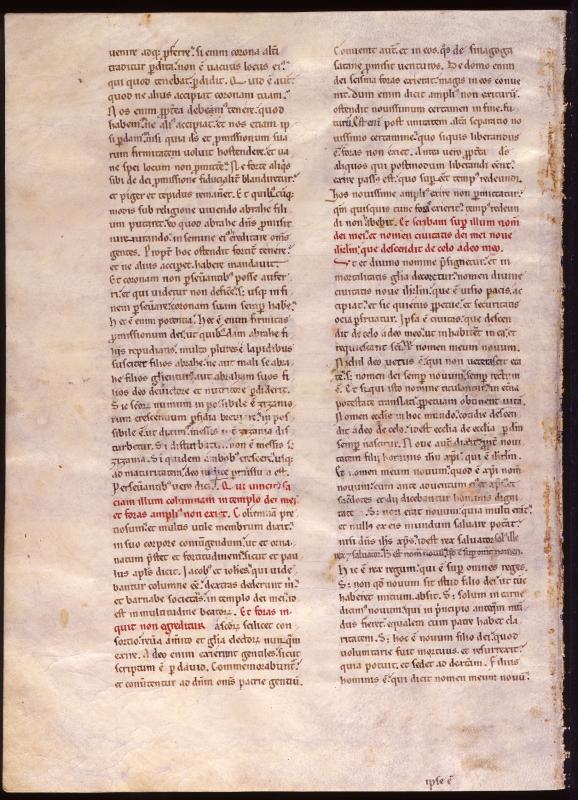 uenire adq; p̄ferre. si enim corona alt̄i
traditur p̄dita. non ē uacuus locus ei.
qui quod tenebat p̄didit. Quid ē aut̄
quod ne alius accipiat coronam tuam.
Nos enim debem' tenere. quod
habem'. ne ali' accipiat. et nos etiam ip
si p̄dam'. nisi quia d̄s et p̄missionum sua
rum firmitatem uoluit hostendere. et ua
ne spei locum non p̄mitte. Ne forte aliq̄s
sibi de dei p̄missione blandiretur.
et piger et tepidus remanet. Et quib' cūq;
modis sub religione uiuendo abrahe fili
um putaret. eo quod abrahe dn̄s p̄misit
in semine ei' ereditare om̄s
gentes. Propt̄ hoc ostendit tenere.
et ne alius accipet. habere mandauit.
Et coronam non p̄seuantib' posse aufer
ri. et qui uidetur non defice. si usq; in fi
nem p̄seuare. coronam suam semp̄ habe.
Hec ē enim potentia. Hec ē enim firmitas
p̄missionum dei. ut quibdam abrahe fi
liis repudiatis. multo plures ē lapidibus
suscitet filios abrahe. ne aut mali se abra
he filios ut abraham suos fi
lios deo deuicere et nutritore p̄diderit.
Sic numum in possibile ē
rum crescentium p̄fidia in pos
sibile ē. ut messis ē zizania dis
turbetur. Si disturbat. non ē messis s;
zizania. Si quidem ambob' crescere. usq;
ad maturitatem. deo iudice p̄missū ē.
Perseuantib' uero dic. Qui uincit fa
ciam illum columnam in templo dei mei
et foras ampli' non exiet. Columnā pre
tiosum. et multis utile membrum dixit.
in suo corpore coniungendum. ut et orna
natum p̄stet et fortitudinem. sicut et pau
lus apls dicit. Iacob' et iohēs. qui uide
bantur columne ēē. dextras dederunt m.
et barnabe societatis. in templo dei mei. id
est in multitudine beator. Et foras in
quit non egreditur ascor scilicet con
sortio. reuā amito et gl̄ia electorꝝ nunq̄m
exire. A deo enim exierunt gentiles. sicut
scriptum ē p̄ dauid. Commemorabunt'
et conūtentur ad dn̄m om̄s patrie gentiū.
Conuenit aut̄. et in eos. q̄s de sinagoga
satane p̄misit uenturos. De domo enim
dei scisma foras exierat. magis in eos conue
nit. dum enim dicit ampli' non exiturū.
ostendit nouissimum certamen in fine. fu
turū. Est enī post unitatem alt̄a separatio no
uissimo certamine. quo siquis liberandus
ē foras non exiet. Antea uero ds
aliquos qui postmodum liberandi erunt.
exire passus est. quo sup̄est temp' redeundi.
hos nouissime ampli' exire non p̄mittatur.
qm̄ quisquis tunc foras exierit. temp' redeun
di non abebit. Et scribam sup̄ illum nom̄
dei mei. et nomen ciuitatis dei mei noue
ihrlm̄. que descendit de celo a deo meo.
Ut et diuino nomine p̄signetur. et in
mortalitatis gl̄ia decoretur. nomen diuine
ciuitatis noue ihrlm̄. que ē uisio pacis. ac
cipiat. et sic quietus p̄petue. et securitatis
ocia p̄fruatur. Ipsa ē ciuitas. que descen
dit de celo a deo meo. ut inhabitet in ea. et
requiescant sc̄i. Et nomen meum nouum.
Nichil deo uetus ē. qui non uetescere ea
te. S; nomen dei semp̄ nouum. semp̄ recens
ē. Et siqui isto nomine titulantur. in et̄na
potestate translati. p̄petuam obtinent uitā.
Nomen ecclīe in hoc mundo. cotidie descen
dit adeo de celo. id est ecclīa de ecclīa p̄ dīn
semp̄ nascitur. Noue aut̄ nouī
tatem filii hominis ih̄u xp̄i. qui ē ihrlm̄.
Et nomen meum nouum. quod ē xp̄i nom̄
nouum. cum ante aduentum ei' et xp̄s. et
sacdotes et duces dicebantur hominis digni
tate. S; non erat nouum. quia multi erāt
et null' ex eis mundum saluare poterat
nisi dn̄s ih̄s xp̄s. id est rex saluator sol' ille
rex. saluator. Hoc est nomen nouū. qd ē sup̄ om̄e nomen.
Hic ē rex regum. qui ē sup̄ omnes reges.
S; non qd̄ nouum sit istud filio dei ut tūc
haberet initium. absit. S; solum in carne
dicim' nouum. qui in p̄ncipio anteq̄m mū
dus fieret. equalem cum patre habet cla
ritatem. S; hoc ē nouum filio dei. quod
uoluntarie fuit mortuus. et resurrexit.
quia potuit. et sedet ad dextram. Fili'
hominis ē. qui dicit nomen meum nouū.
ipse ē